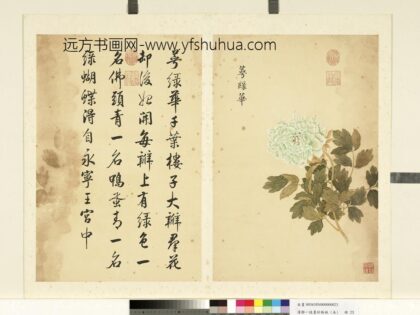 远方书画网-www.yfshuhua.com
萼綠華
萼綠華千葉樓子大瓣羣花
卸後始開每瓣上有綠色一
名佛頭青一名鴨蛋青一名
綠蝴蝶得自永寧王宮中